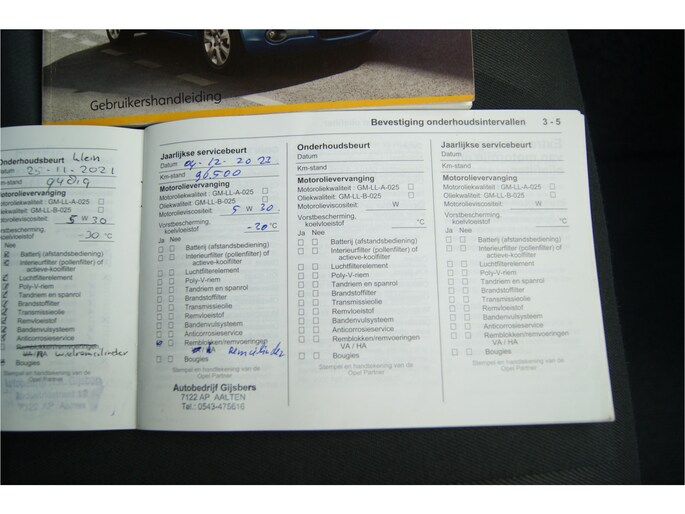 Gebruikershandleiding
Bevestiging onderhoudsintervallen 3 - 5
Onderhoudsbeurt Klein
Datum 25-11-2021
Km-stand
Motorolievervanging
Motoroliekwaliteit : GM-LL-A-025
Oliekwaliteit : GM-LL-B-025
Motorolieviscositeit: 5 W 30
Vorstbescherming,
koelvloeistof -30 °C
Nee
Batterij (afstandsbediening)
Interieurfilter (pollenfilter) of
actieve-koolfilter
Luchtfilterelement
Poly-V-riem
Tandriem en spanrol
Brandstoffilter
Transmissieolie
Remvloeistof
Bandenvulsysteem
Anticorrosieservice
wielremcilinder
Bougies
Stempel en handtekening van de
Opel Partner
Jaarlijkse servicebeurt
Datum 04-12-2023
Km-stand 96500
Motorolievervanging
Motoroliekwaliteit : GM-LL-A-025
Oliekwaliteit : GM-LL-B-025
Motorolieviscositeit: 5 W 30
Vorstbescherming,
koelvloeistof -30 °C
Ja Nee
Batterij (afstandsbediening)
Interieurfilter (pollenfilter) of
actieve-koolfilter
Luchtfilterelement
Poly-V-riem
Tandriem en spanrol
Brandstoffilter
Transmissieolie
Remvloeistof
Bandenvulsysteem
Anticorrosieservice
Remblokken/remvoeringen
HA Remcilinder
Bougies
Stempel en handtekening van de
Opel Partner
Autobedrijf Gijsbers
7122 AP AALTEN
Tel.: 0543-475616
Onderhoudsbeurt
Datum
Km-stand
Motorolievervanging
Motoroliekwaliteit : GM-LL-A-025
Oliekwaliteit : GM-LL-B-025
Motorolieviscositeit: W
Vorstbescherming,
koelvloeistof °C
Ja Nee
Batterij (afstandsbediening)
Interieurfilter (pollenfilter) of
actieve-koolfilter
Luchtfilterelement
Poly-V-riem
Tandriem en spanrol
Brandstoffilter
Transmissieolie
Remvloeistof
Bandenvulsysteem
Anticorrosieservice
Remblokken/remvoeringen
VA / HA
Bougies
Stempel en handtekening van de
Opel Partner
Jaarlijkse servicebeurt
Datum
Km-stand
Motorolievervanging
Motoroliekwaliteit : GM-LL-A-025
Oliekwaliteit : GM-LL-B-025
Motorolieviscositeit: W
Vorstbescherming,
koelvloeistof °C
Ja Nee
Batterij (afstandsbediening)
Interieurfilter (pollenfilter) of
actieve-koolfilter
Luchtfilterelement
Poly-V-riem
Tandriem en spanrol
Brandstoffilter
Transmissieolie
Remvloeistof
Bandenvulsysteem
Anticorrosieservice
Remblokken/remvoeringen
VA / HA
Bougies
Stempel en handtekening van de
Opel Partner